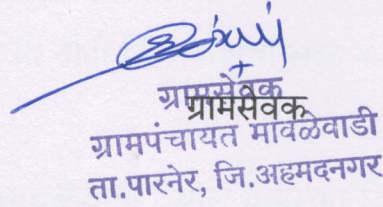 ग्रामसेवक
ग्रामसेवक
ग्रामपंचायत मावळेवाडी
ता.पारनेर, जि.अहमदनगर